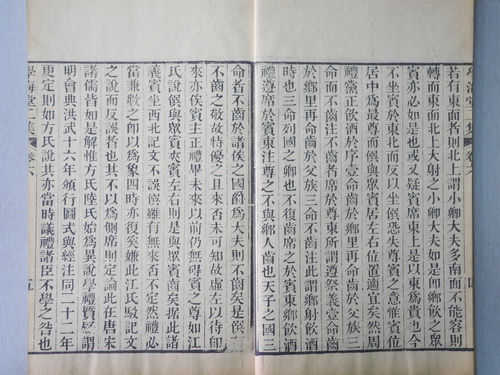 學海堂二集 卷六
若有東面者則北上謂小卿大夫多南而不能容則
轉而東面北上大射之小卿大夫如是卽鄉飲之眾
賓亦必如是也或又疑賓席東上是以東爲貴也今
不坐賓於東北而反以坐僎恐失尊賓之意惟賓位
居中爲最尊而僎與眾賓居左右位置適宜矣然周
禮黨正飲酒於序壹命齒於鄉里再命齒於父族三
命而不齒注不齒者席於尊東所謂遵祭義壹命齒
於鄉里再命齒於父族三命而不齒注此謂鄉射飲酒
時也三命列國之卿也不復齒席之於賓東鄉飲酒
禮遵席於賓東注尊之不與鄉人齒也天子之國三
命者不齒於諸侯之國爵爲大夫則不齒矣是僎
不齒之敬故特優之且來否未可知故虛左以待卽
來亦俟賓主正禮畢未來以前仍無礙賓之尊如江
氏說僎與眾賓夾賓左右則是與眾賓齒矣據此諸
義賓坐西北記文不誤僎雖有無來不定然禮必
當兼數之卽以爲象四時亦復奚嫌此江氏駁記文
之說而反誤者也其以爲側席則定論此在唐宋
諸儒皆如是解惟方氏陸氏始爲異說學禮質疑謂
明會典洪武十六年頒行圖式與經注同二十二年
更定則如方氏說其亦當時議禮諸臣不學之咎也
學海堂二集 卷六 五